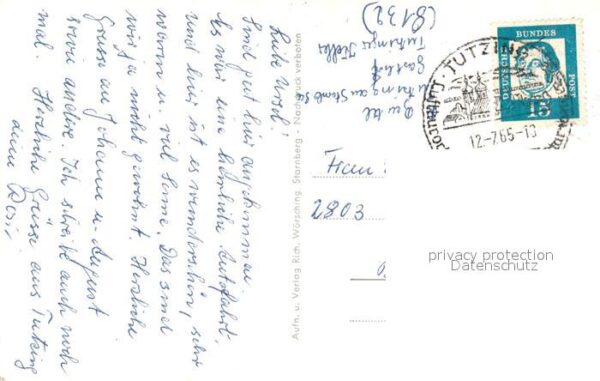 Liebe Ursel!
Sind gut hier angekommen
Es war eine herrliche Autofahrt.
und hier ist es wunderschön, sehr
warm u. viel Sonne. Das sind
wir ja nicht gewohnt. Herzliche
Grüsse an Johann u. August
sowie andere. Ich schreibe auch noch
mal. Herzliche Grüsse aus Tutzing
deine Rosi
Aufn. u. Verlag Rich. Wörsching, Starnberg Nachdruck verboten
Tutzing am Starnb. See
Gasthof
Tutzinger Keller
(8132)
DEUTSCHE
BUNDES
POST
15
TUTZING
12-7.65-18
Frau
2803
privacy protection
Datenschutz